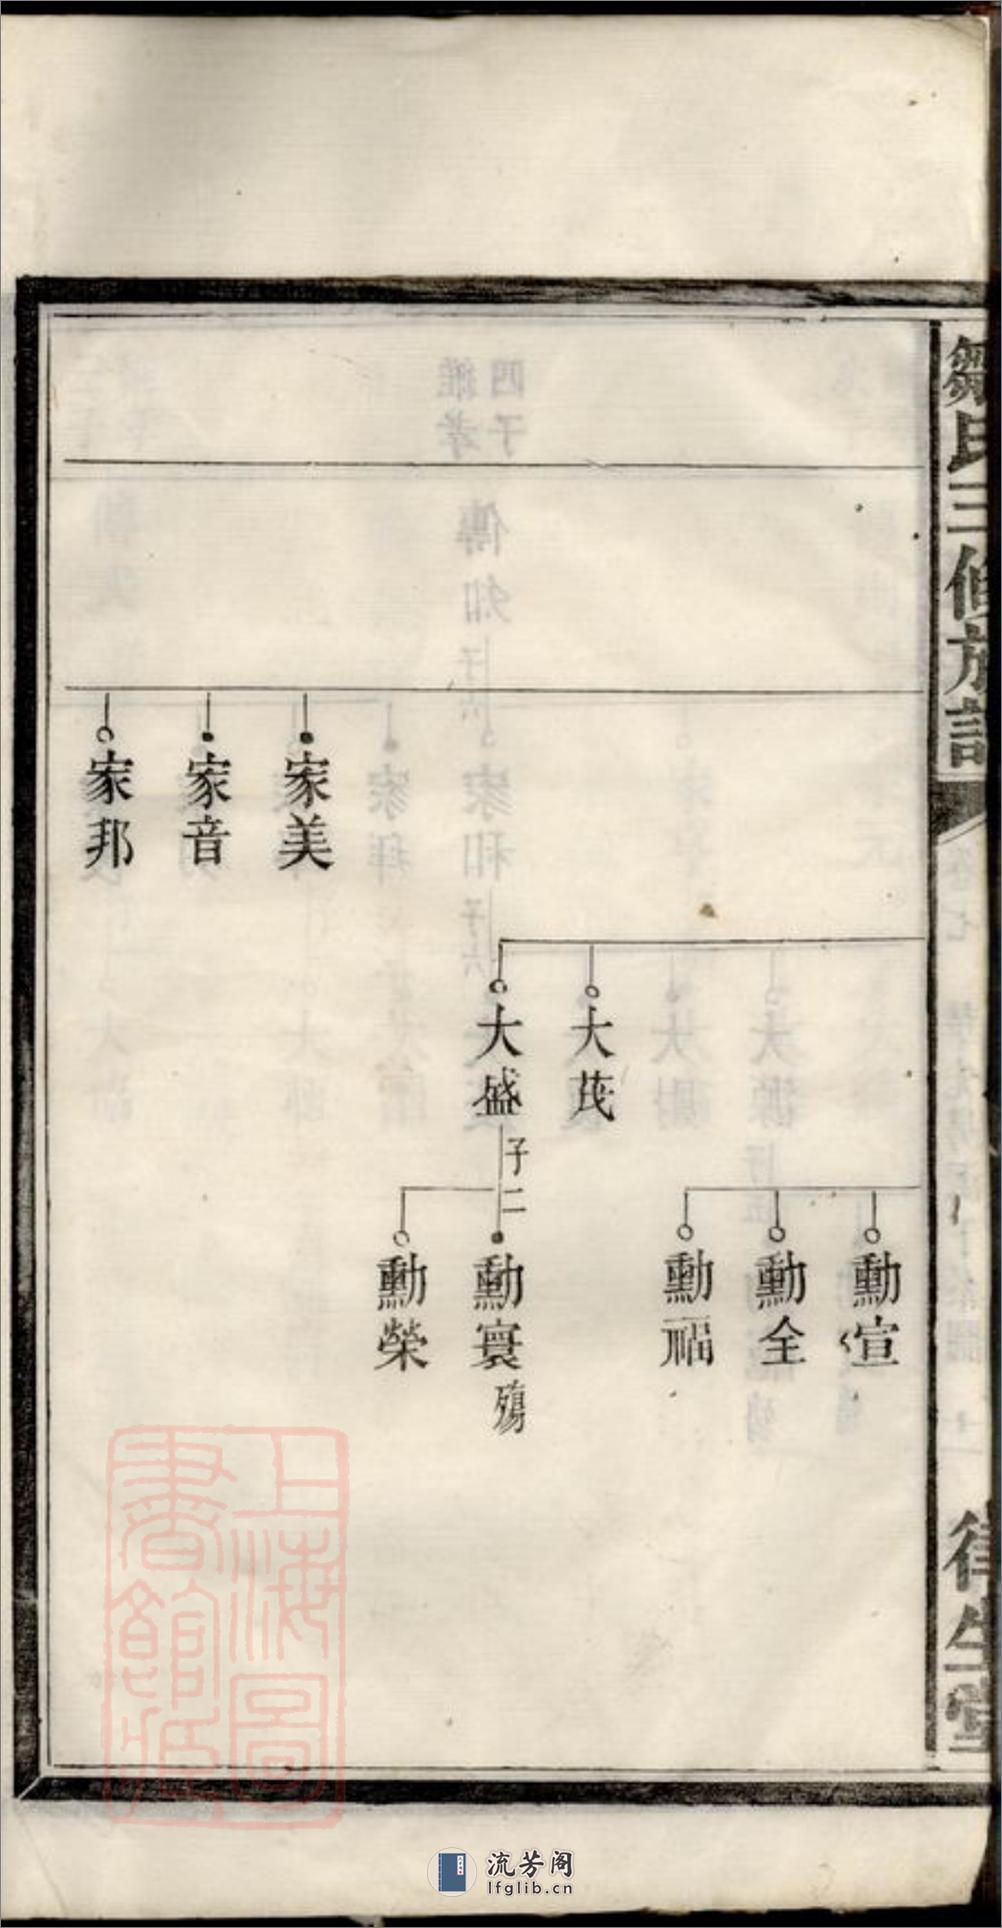 鄒氏三修族譜
家美
家音
家邦
大茂
大盛
子二
勳宣
勳全
勳福
勳寰
殤
勳榮
上海圖
書館藏
流芳阁
lfglib.cn